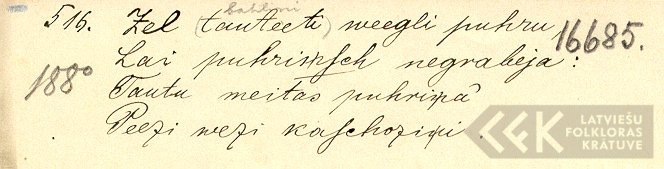 bahleni
516. Zel (tauteeti) weegli puhru 16685.
Lai puhriņsch negrabeja:
1880 Tautu meitas puhriņā
Peezi wezi kaschoziņi.
LATVIEŠU
FOLKLORAS
KRĀTUVE